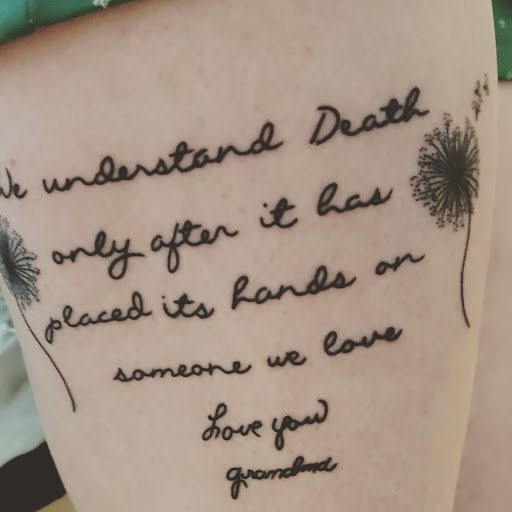 We understand Death
only after it has
placed its hands on
someone we love
Love you
grandma